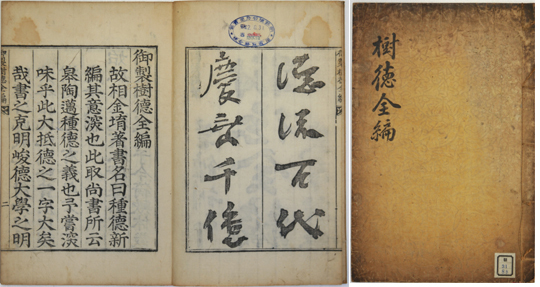 樹德全編
流百代
慶千億
御製樹德全編
故相金堉著書名曰種德新
編其意深也此取尚書所云
皋陶邁種德之義也予嘗深
味乎此大抵德之一字大矣
哉書之克明峻德大學之明
二